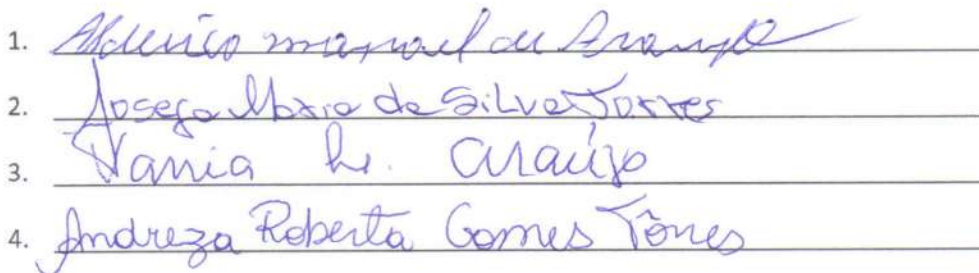 1. Alderico manoel de Araujo
2. Josefa Maria da Silva Torres
3. Vania L. Araújo
4. Andreza Roberta Gomes Tôrres